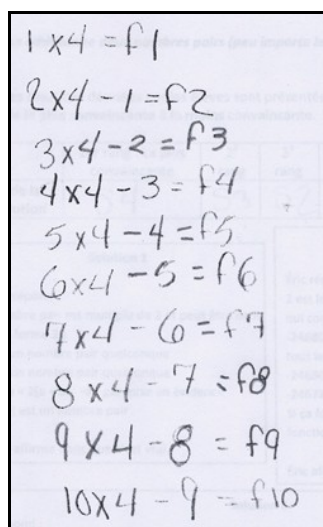 1x4 = f1
2x4 - 1 = f2
3x4 - 2 = f3
4x4 - 3 = f4
5x4 - 4 = f5
6x4 - 5 = f6
7x4 - 6 = f7
8x4 - 7 = f8
9x4 - 8 = f9
10x4 - 9 = f10